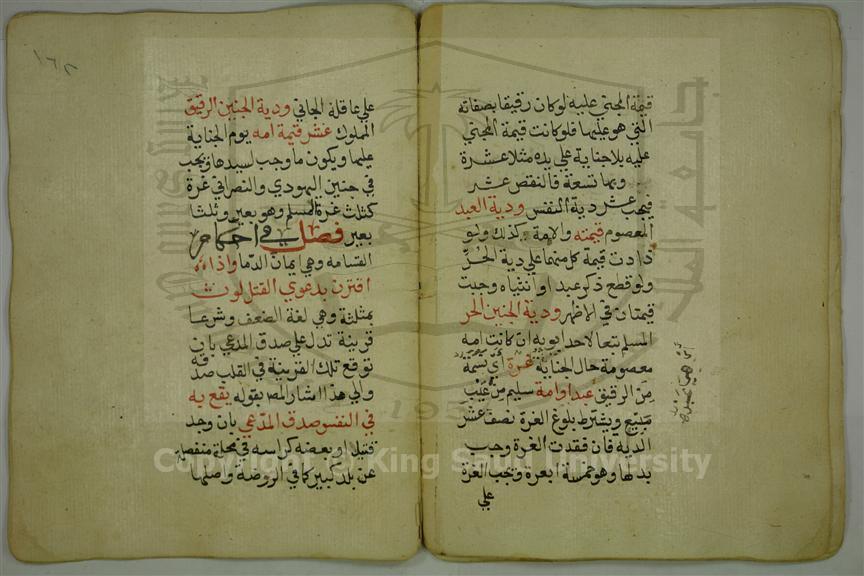 قيمة المجني عليه لو كان رقيقا بصفاته
التي هو عليها فلو كانت قيمة المجني
عليه بلا جناية علي يده مثلا عشرة
وبها تسعة فالنقص عشر
فيجب عشر دية النفس ودية العبد
المعصوم قيمته والامة كذلك ولو
زادت قيمة كل منهما علي دية الحر
ولو قطع ذكر عبد او انثياه وجبت
قيمتان في الاظهر ودية الجنين الحر
المسلم تبعا لاحد ابويه ان كانت امه
معصومة حال الجناية غرة اي نسمة
من الرقيق عبد او امة سليم من عيب
مبيع ويشترط بلوغ الغرة نصف عشر
الدية فان فقدت الغرة وجب
بدلها وهو خمسة ابعرة وتجب الغرة
علي
١٦٨
علي عاقلة الجاني ودية الجنين الرقيق
المملوك عشر قيمة امه يوم الجناية
عليها ويكون ما وجب لسيدها ويجب
في جنين اليهودي والنصراني غرة
كثلث غرة المسلم وهو بعير وثلثا
بعير فصل في احكام
القسامه وهي ايمان الدما واذا
اقترن بدعوي القتل لوث
بمثلثة وهي لغة الضعف وشرعا
قرينة تدل علي صدق المدعي بان
توقع تلك القرينة في القلب صدقه
والي هذا اشار المص بقوله يقع به
في النفس صدق المدعي بان وجد
قتيل او بعضه كراسه في محلة منفصلة
عن بلد كبير كما في الروضة واصلها
Copyright © King Saud University
جامعة الملك
195